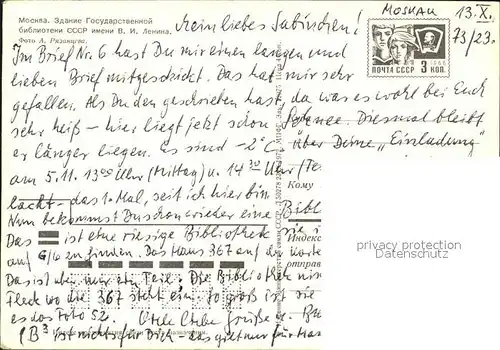 Москва. Здание Государственной
библиотеки СССР имени В. И. Ленина.
Фото А. Рязанцева.
Mein liebes Sabinchen!
MOSKAU 13.X.
73/23.
ПОЧТА СССР 3 КОП.
Im Brief Nr. 6 hast Du mir einen langen und
lieben Brief mitgeschickt. Das hat mir sehr
gefallen. Als Du den geschrieben hast, da was es wohl bei Euch
sehr heiß – hier liegt jetzt schon Schnee. Diesmal bleibt
er länger liegen. Es sind -2°C
über Deine "Einladung"
am 5.11. 13 00 Uhr (Mittag) u. 14 30 Uhr
lacht – das 1. Mal, seit ich hier bin
Кому
Nun bekommst Du schon wieder eine Bibl
Das ist eine riesige Bibliothek sie i
Индекс
отправ
privacy protection
©Ansichtskartenversand
auf G/10 zu finden. Das Haus 367 auf der
Das ist aber nur ein Teil. Die Bibliothek
Fleck wo die 367 steht ein. So groß ist sie
es das Foto 52. Viele liebe Grüße u.
(B 3 ist nichts für Dich – das gilt nur für